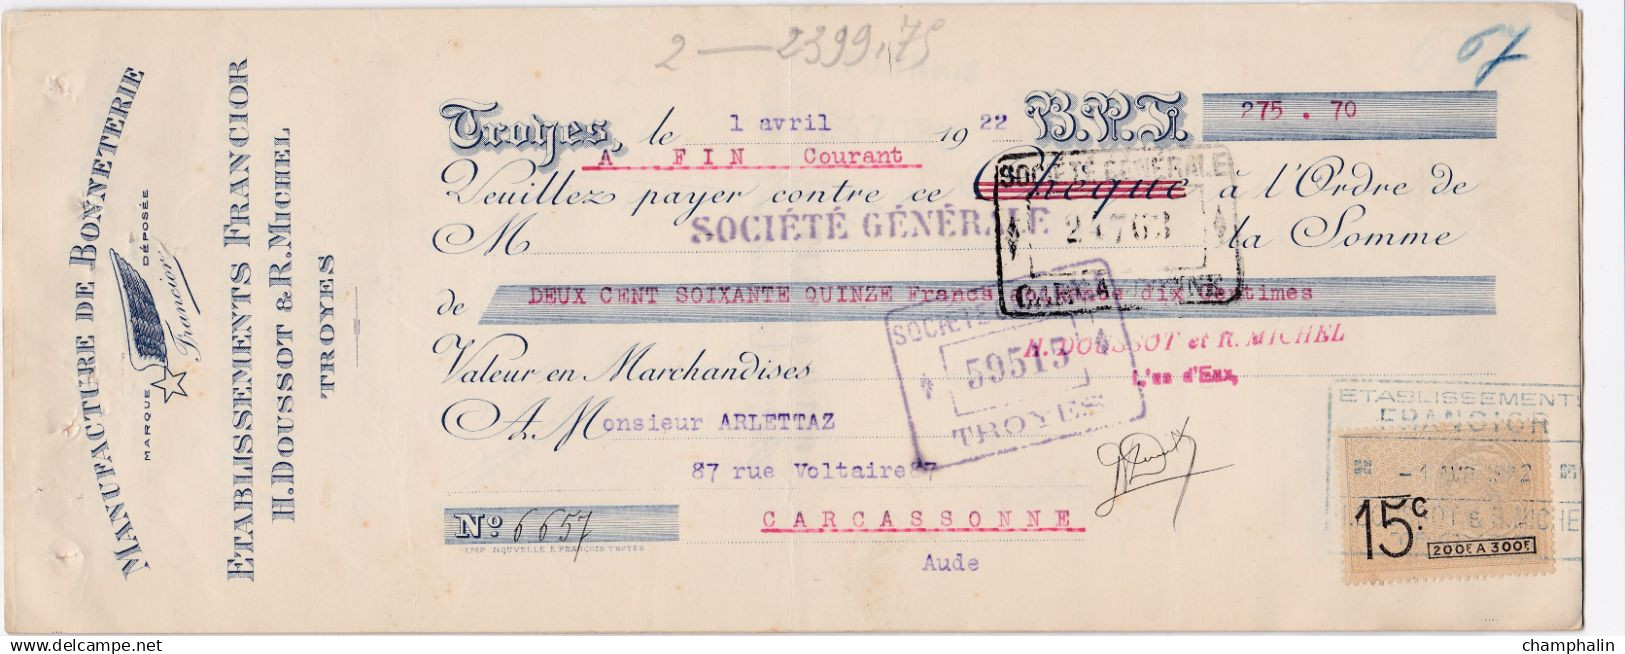 2 — 2399,75
67
MANUFACTURE DE BONNETERIE
MARQUE DÉPOSÉE
Francior
ETABLISSEMENTS FRANCIOR
H. DOUSSOT & R. MICHEL
TROYES
Troyes, le 1 avril 1922 B.P.F. 275 . 70
A FIN Courant
Veuillez payer contre ce Chèque à l'Ordre de
M SOCIÉTÉ GÉNÉRALE la Somme
de DEUX CENT SOIXANTE QUINZE Francs dix Centimes
SOCIÉTÉ GÉNÉRALE
24763
SOCIÉTÉ
59515
TROYES
H. DOUSSOT et R. MICHEL
Valeur en Marchandises
L'es d'Eux,
A Monsieur ARLETTAZ
87 rue Voltaire 87
CARCASSONNE
Aude
No. 6657
IMP. NOUVELLE E. FRANÇOIS TROYES
ETABLISSEMENTS
FRANCIOR
15c.
200F. A 300F.
www.delcampe.net
champhalin